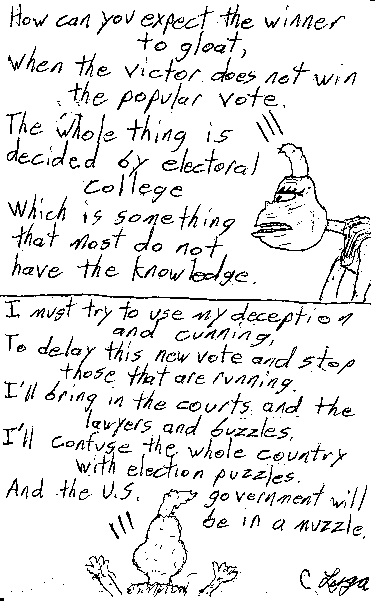 How can you expect the winner
to gloat,
when the victor does not win
the popular vote.
The whole thing is
decided by electoral
college
Which is something
that most do not
have the knowledge.
I must try to use my deception
and cunning,
To delay this new vote and stop
those that are running.
I'll bring in the courts and the
lawyers and buzzles,
I'll confuse the whole country
with election puzzles.
And the U.S. government will
be in a muzzle.
C